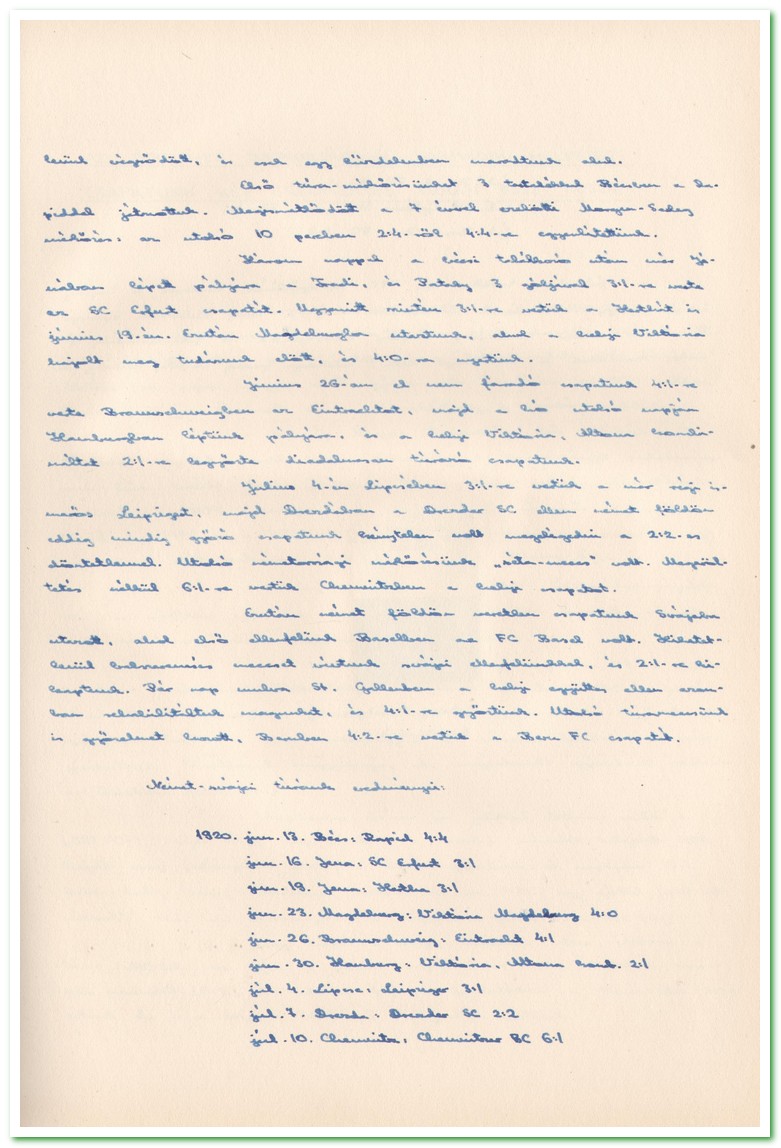 lenül végződött, és csak egy küzdelemben maradtunk alul.
Első túra-mérkőzésünket 3 tartalékkal Bécsben a Ra-
piddal játszottuk. Megismétlődött a 7 évvel ezelőtti
mérkőzés: az utolsó 10 percben 2:4-ről 4:4-re egyenlítettünk.
Három nappal a bécsi találkozó után már Jé-
nában lépett pályára a Fradi, és Pataky 3 góljával 3:1-re verte
az SC Erfurt csapatát. Ugyanitt miután 3:1-re vertük a Herthát is
június 19-én. Ezután Magdeburgba utaztunk, ahol a helyi Viktória
hajolt meg tudásunk előtt, és 4:0-ra nyertünk.
Június 26-án el nem fáradó csapatunk 4:1-re
verte Braunschweigben az Eintrachtot, majd a hó utolsó napján
Hamburgban léptünk pályára, és a helyi Viktória, Altona kombi-
náltat 2:1-re legyőzte diadalmasan túrázó csapatunk.
Július 4-én Lipcsében 3:1-re vertük a már régi is-
merős Leipziget, majd Drezdában a Dresdner SC ellen német földön
eddig mindig győző csapatunk kénytelen volt megelégedni a 2:2-es
döntetlennel. Utolsó németországi mérkőzésünk „séta-meccs" volt. Megeről-
tetés nélkül 6:1-re vertük Chemnitzben a helyi csapatot.
Ezután német földön veretlen csapatunk Svájcba
utazott, ahol első ellenfelünk Baselben az FC Basel volt. Hihetet-
lenül balszerencsés meccset vívtunk svájci ellenfelünkkel, és 2:1-re ki-
kaptunk. Pár nap mulva St. Gallenben a helyi együttes ellen azon-
ban rehabilitáltuk magunkat, és 4:1-re győztünk. Utolsó túrameccsünk
is győzelmet hozott, Bernben 4:2-re vertük a Bern FC csapatát.
Német-svájci túránk eredményei:
1920. jun. 13. Bécs: Rapid 4:4
jun. 16. Jena: SC Erfurt 3:1
jun. 19. Jena: Hertha 3:1
jun. 23. Magdeburg: Viktória Magdeburg 4:0
jun. 26. Braunschweig: Eintracht 4:1
jun. 30. Hamburg: Viktória, Altona komb. 2:1
júl. 4. Lipcse: Leipziger 3:1
júl. 7. Drezda: Dresdner SC 2:2
júl. 10. Chemnitz: Chemnitzer BC 6:1